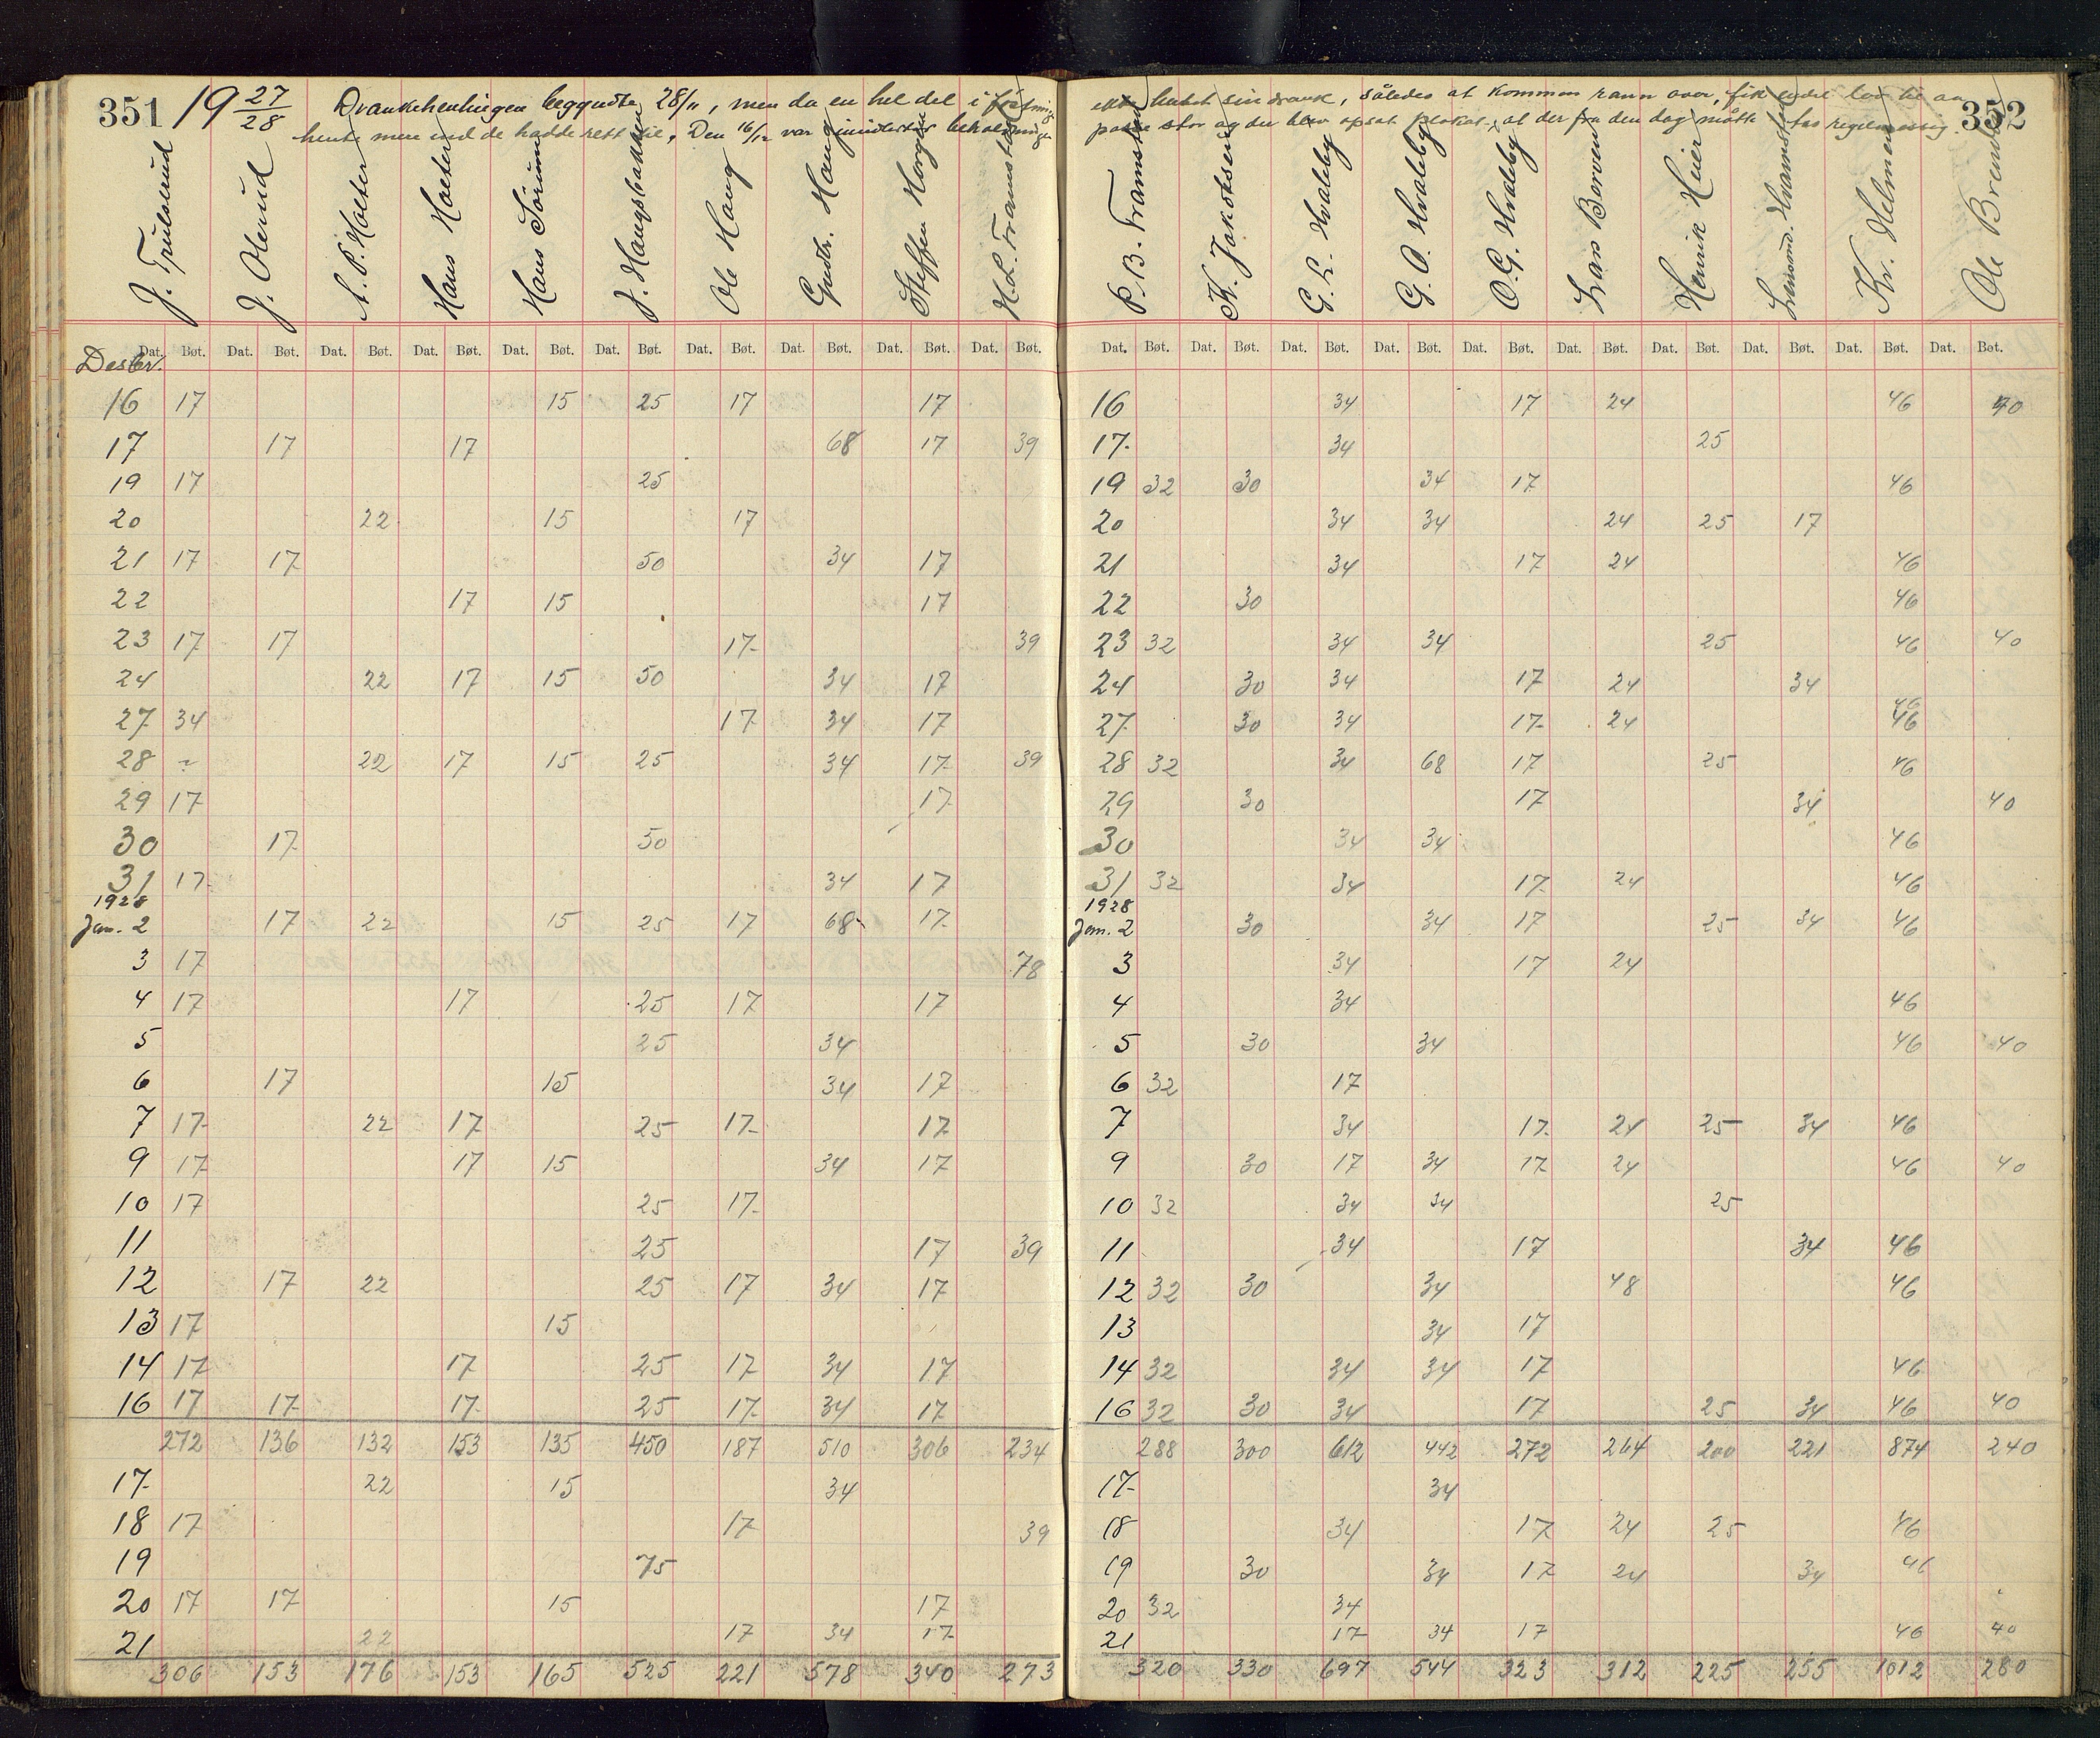 351 19 27/28 Drankehentingen begyndte 28/11, men da en hel del i
hente mere end de hadde rett til, Den 16/12 var
J. Trulserud J. Olerud A. P. Holter Hans Holter Hans Sörum J. Haugsbakken Ole Haug Gudbr. Haug Steffen Horgen H. L. Framstad
Dat. Bøt. Dat. Bøt. Dat. Bøt. Dat. Bøt. Dat. Bøt. Dat. Bøt. Dat. Bøt. Dat. Bøt. Dat. Bøt. Dat. Bøt.
Desbr.
16 17 15 25 17 17
17 17 17 68 17 39
19 17 25
20 22 15 17
21 17 17 50 34 17
22 17 15 17
23 17 17 17 39
24 22 17 15 50 34 17
27 34 17 34 17
28 22 17 15 25 34 17 39
29 17 17
30 17 50
31 17 34 17
1928
Jan. 2 17 22 15 25 17 68 17
3 17 78
4 17 17 25 17 17
5 25 34
6 17 15 34 17
7 17 22 17 25 17 17
9 17 17 15 34 17
10 17 25 17
11 25 17 39
12 17 22 25 17 34 17
13 17 15
14 17 17 25 17 34 17
16 17 17 17 25 17 34 17
272 136 132 153 135 450 187 510 306 234
17 22 15 34
18 17 17 39
19 75
20 17 17 15 17
21 22 17 34 17
306 153 176 153 165 525 221 578 340 273
hentet sin drank, således at kommen rann over, fik endel lov til aa 352
passe stor og der blev opsat plakat, at der fra den dag måtte tas regelmessig.
P. B. Framstad K. Jakobsen G. L. Hvaleby G. O. Hvaleby O. G. Hvaleby Lars Berven Henrik Heier Hvamstad Kr. Helmen Ole Brenden
Dat. Bøt. Dat. Bøt. Dat. Bøt. Dat. Bøt. Dat. Bøt. Dat. Bøt. Dat. Bøt. Dat. Bøt. Dat. Bøt. Dat. Bøt.
16 34 17 24 46 40
17 34 25
19 32 30 34 17 46
20 34 34 24 25 17
21 34 17 24 46
22 30 46
23 32 34 34 25 46 40
24 30 34 17 24 34 46
27 30 34 17 24 46
28 32 34 68 17 25 46
29 30 17 34 40
30 34 34 46
31 32 34 17 24 46
1928
Jan. 2 30 34 17 25 34 46
3 34 17 24
4 34 46
5 30 34 46 40
6 32 17
7 34 17 24 25 34 46
9 30 17 34 17 24 46 40
10 32 34 34 25
11 34 17 34 46
12 32 30 34 48 46
13 34 17
14 32 34 34 17 46
16 32 30 34 17 25 34 46 40
288 300 612 442 272 264 200 221 874 240
17 34
18 34 17 24 25 46
19 30 34 17 24 34 46
20 32 34
21 17 34 17 46 40
320 330 697 544 323 312 225 255 1012 280